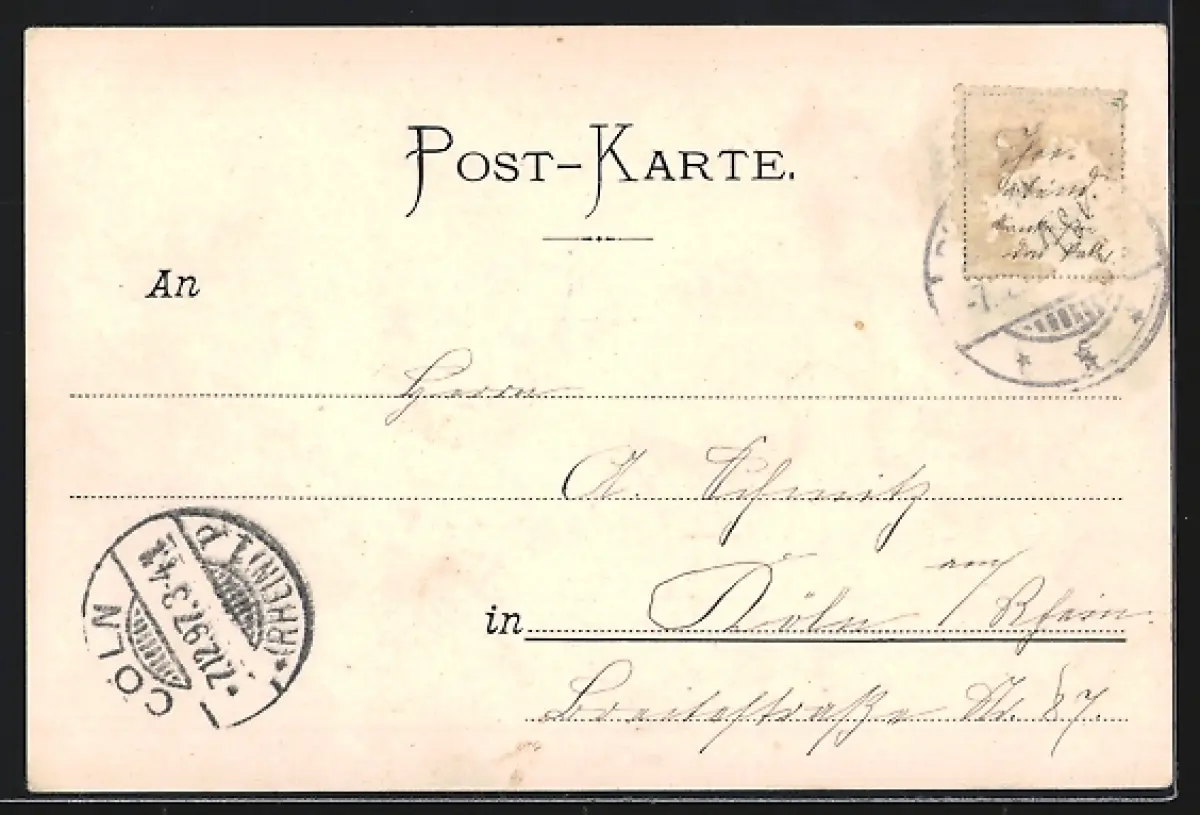 POST-KARTE.
An
Herrn
A. Schmitz
in Köln am/Rhein.
Breitestraße Nr. 87.
CÖLN (RHEIN) 1 P
7.12.97. 3-4 N